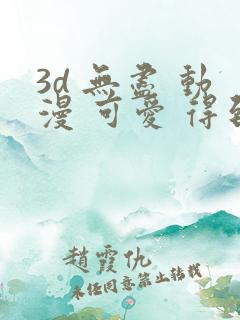 3d 無盡 動
漫 可愛 得到
趙霞仇
未经同意禁止转载